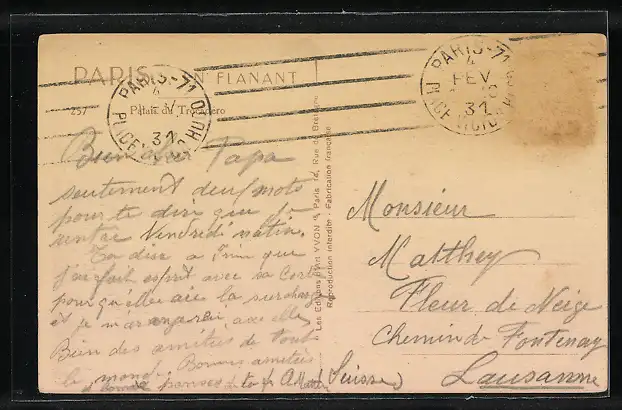 PARIS... EN FLANANT
257 Palais du Trocadero
PARIS-71
4
31
PL. CENCIO
PARIS-71
4
FEV
31
PL. CENCIO
Bien cher Papa
seulement deux mots
pour te dire que je
rentre Vendredi matin.
Tu diras à
j'ai fait esprit avec sa
pour qu'elle aie la
et je m'arrangerai avec elle
Bien des amitiés de tout
le monde. Bonnes amitiés
et bonnes pensées de ta
Les Editions d'Art YVON, Paris, Rue de Bretagne
Reproduction interdite - Fabrication française
Monsieur
Matthey
Fleur de Neige
Chemin de Fontenay
Lausanne
Suisse